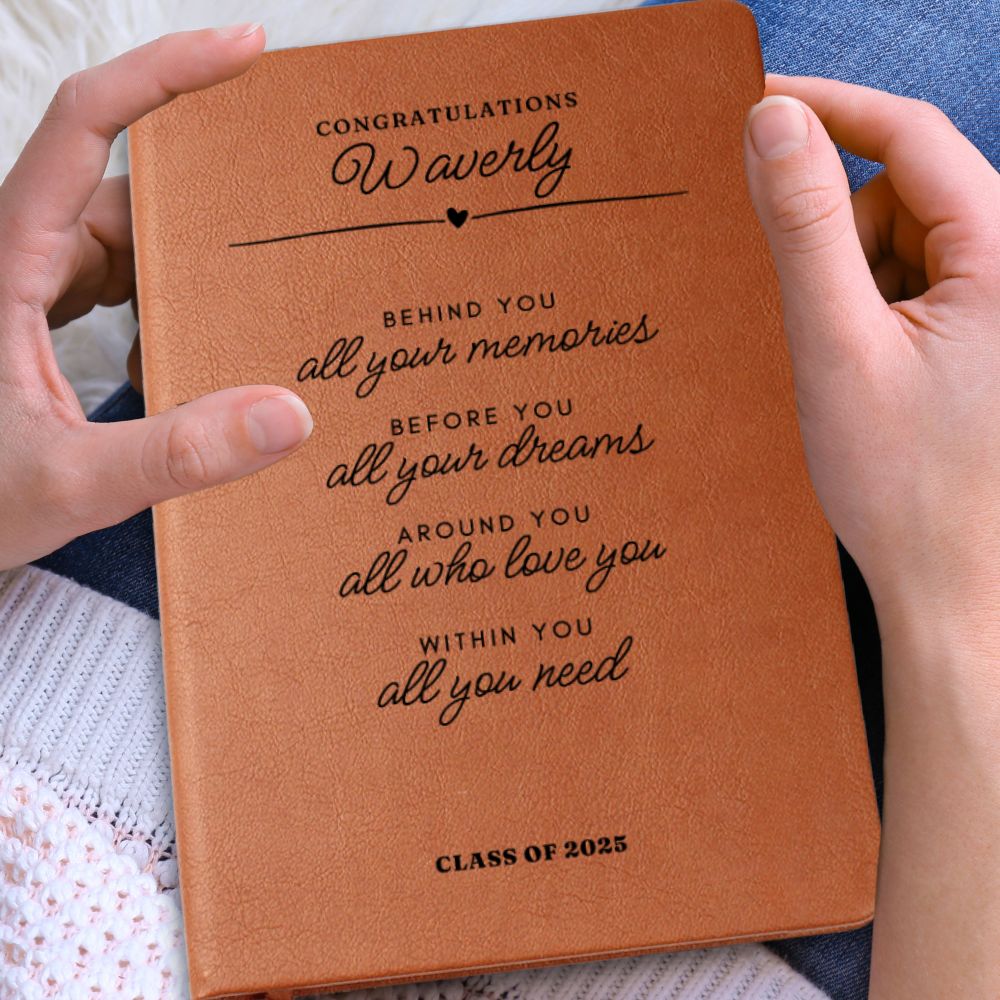 CONGRATULATIONS
Waverly
BEHIND YOU
all your memories
BEFORE YOU
all your dreams
AROUND YOU
all who love you
WITHIN YOU
all you need
CLASS OF 2025